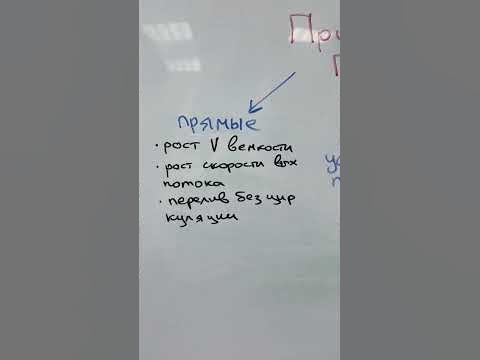 При
П
прямые
· рост V вемкости
· рост скорости вых
потока
· перелив без цир
куляции